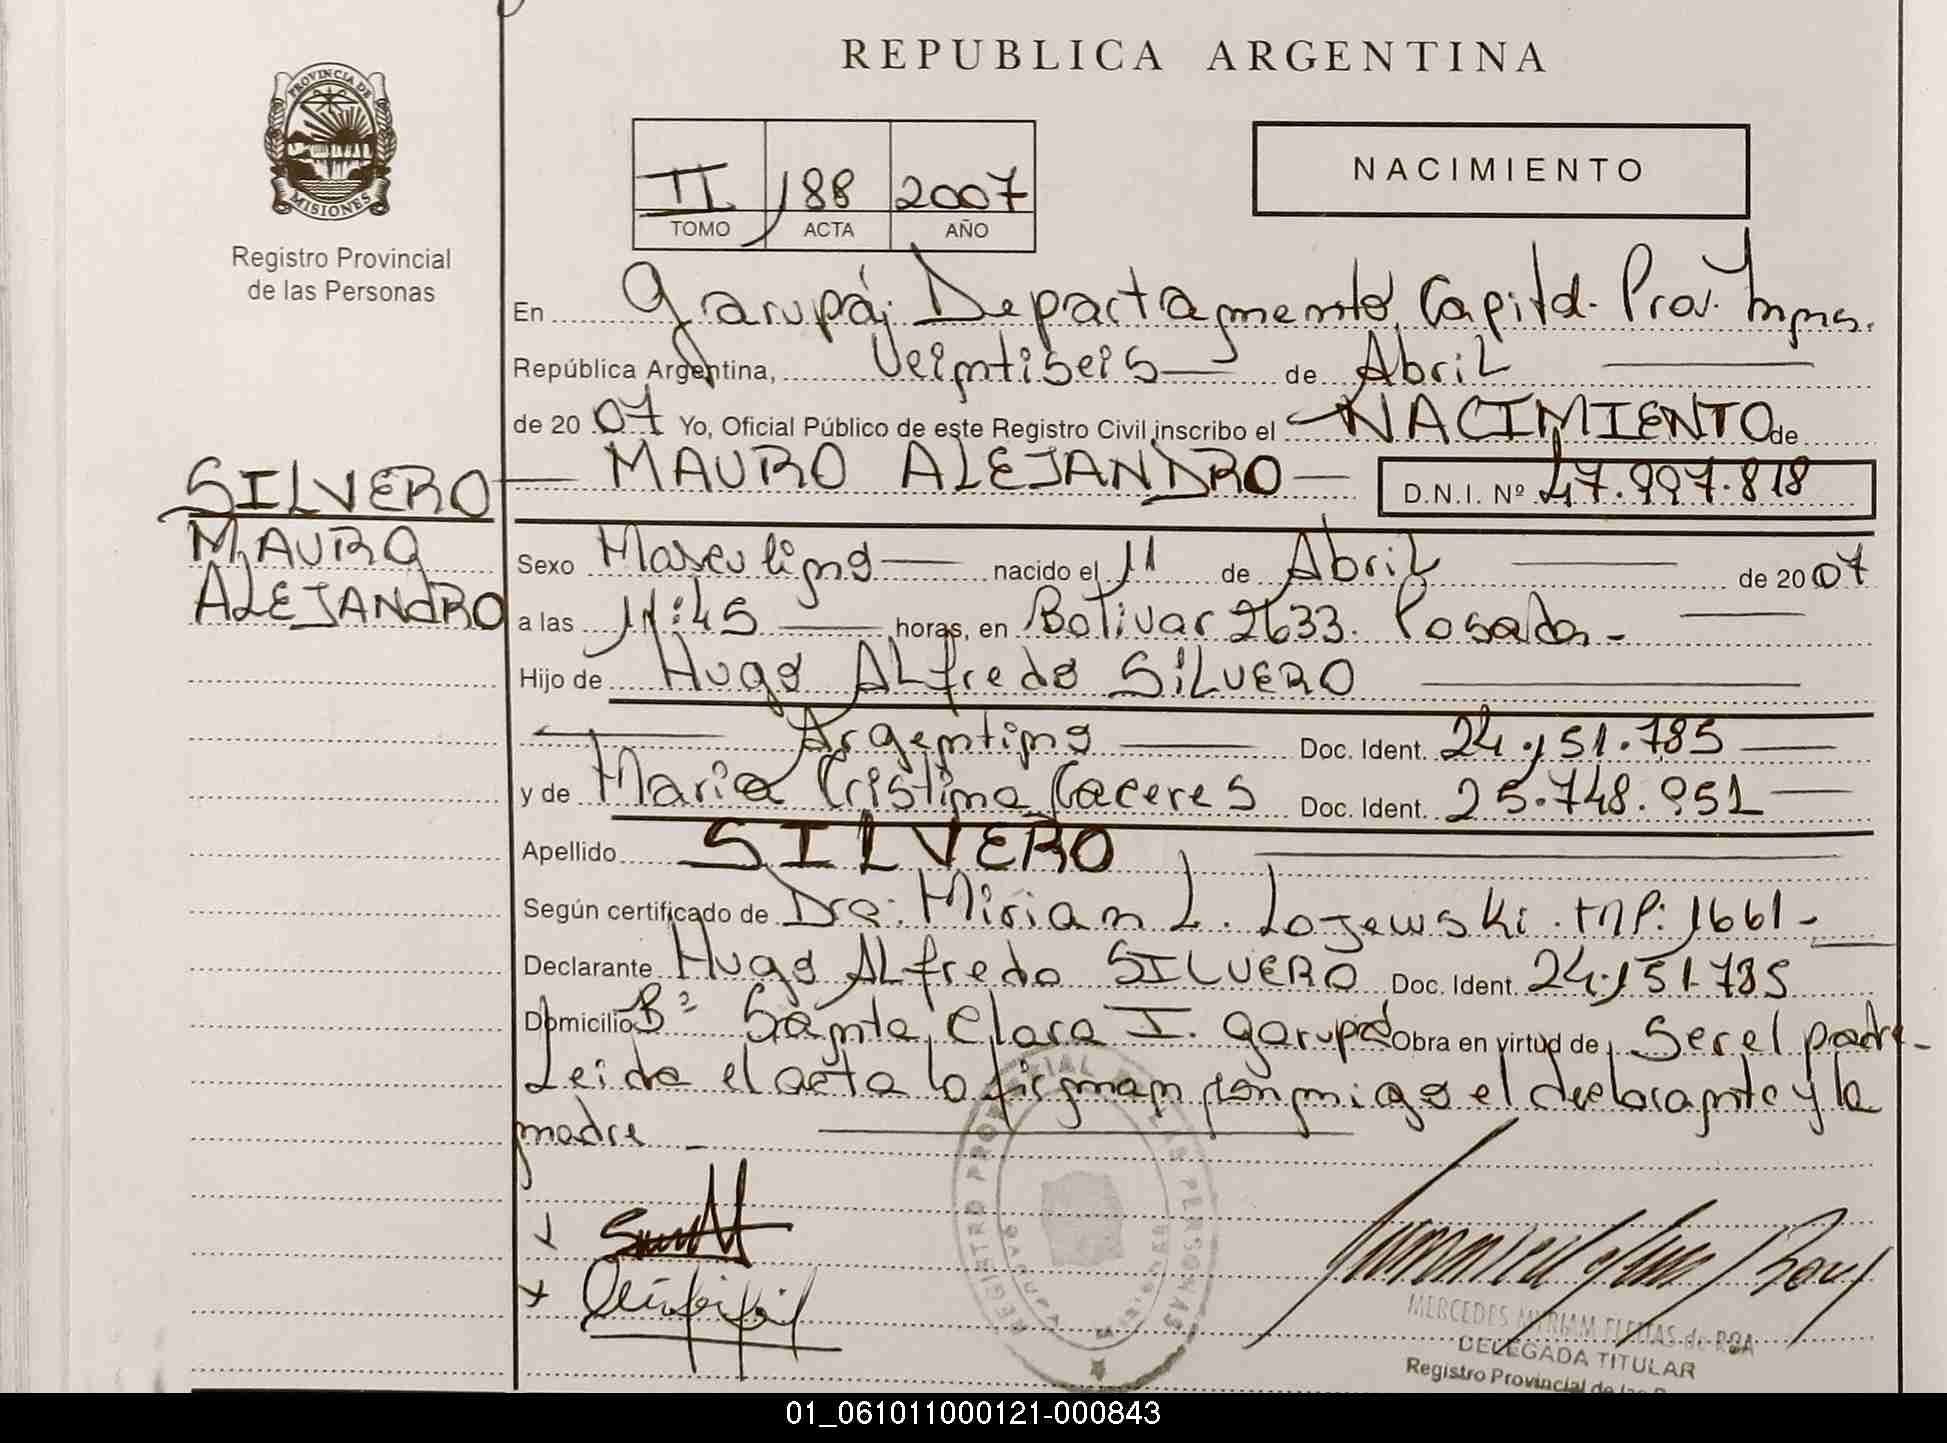 REPUBLICA ARGENTINA
PROVINCIA DE
MISIONES
Registro Provincial
de las Personas
II 188 2007
TOMO ACTA AÑO
NACIMIENTO
En Garupá, Departamento Capital. Prov. Mnes.
República Argentina, Veintiseis de Abril
de 2007 Yo, Oficial Público de este Registro Civil inscribo el NACIMIENTO de
MAURO ALEJANDRO D.N.I. Nº 47.997.818
SILVERO
MAURO
ALEJANDRO
Sexo Masculino nacido el 11 de Abril de 2007
a las 11:45 horas, en Bolivar 2633. Posadas.
Hijo de Hugo Alfredo SILVERO
Argentino Doc. Ident. 24.151.785
y de Maria Cristina Caceres Doc. Ident. 25.748.951
Apellido SILVERO
Según certificado de Dra. Mirian L. Lojewski. MP: 1661-
Declarante Hugo Alfredo SILVERO Doc. Ident. 24.151.785
Domicilio Bº Santa Clara I. Garupá Obra en virtud de Ser el padre-
Leida el acta la firman conmigo el declarante y la
madre
REGISTRO PROVINCIAL DE LAS PERSONAS
MERCEDES MYRIAM FLEITAS de ROA
DELEGADA TITULAR
Registro Provincial de las
01_061011000121-000843